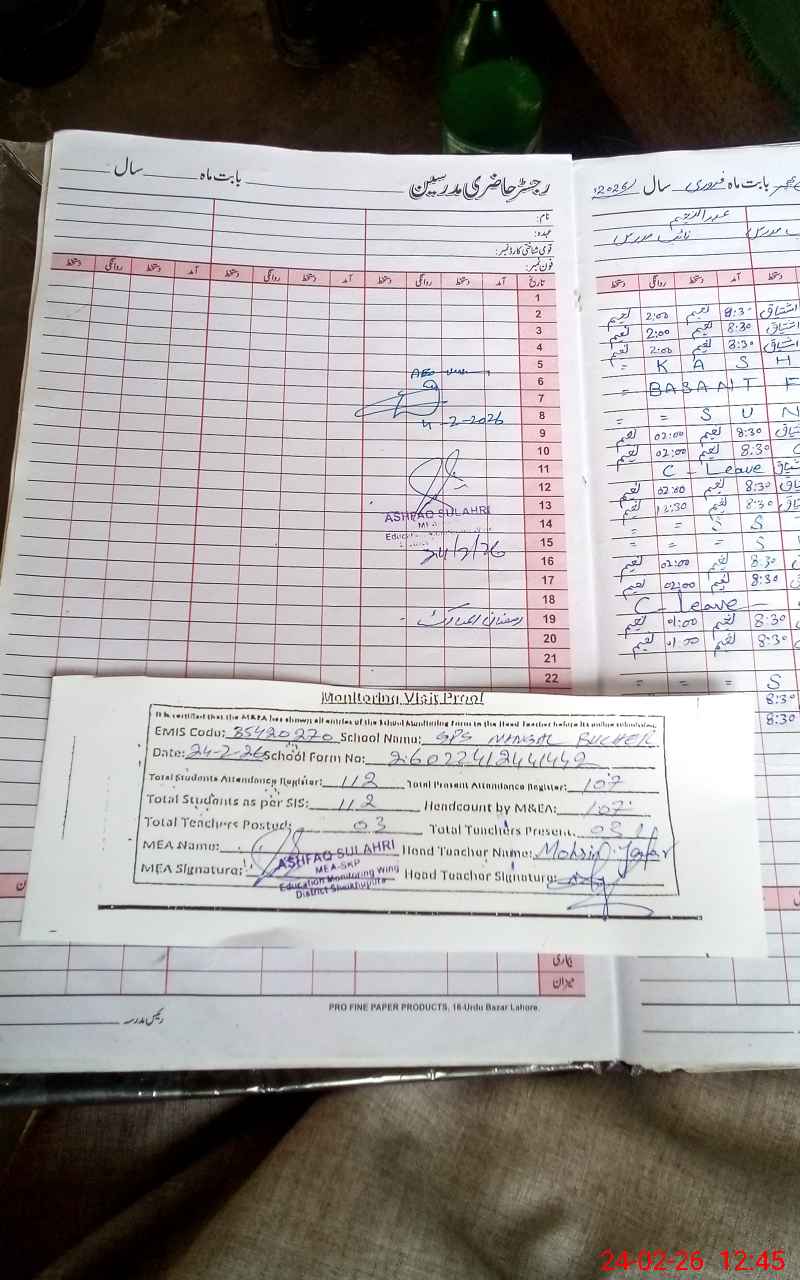 رجسٹر حاضری مدرسین ـــــــ بابت ماہ ـــــــ سال ـــــــ
نام:
عہدہ:
قومی شناختی کارڈ نمبر:
فون نمبر:
تاریخ آمد دستخط روانگی دستخط آمد دستخط روانگی دستخط آمد دستخط روانگی دستخط
1
2
3
4
5
6
7
8
9
10
11
12
13
14
15
16
17
18
19
20
21
22
AEO
4-2-2026
ASHFAQ SULAHRI
24/2/26
رمضان المبارک
بابت ماہ فروری سال 2026ء
عبدالرحیم
نائب مدرس
دستخط آمد دستخط روانگی دستخط
اشتاق 8:30 نعیم 2:00 نعیم
اشتاق 8:30 نعیم 2:00 نعیم
اشتاق 8:30 نعیم 2:00 نعیم
= K A S H
= BASANT F
= = S U N
8:30 نعیم 02:00 نعیم
8:30 نعیم 02:00 نعیم
C - Leave
8:30 نعیم 02:00 نعیم
8:30 نعیم 12:30 نعیم
= = S S
= = = S
8:30 نعیم 02:00 نعیم
8:30 نعیم 02:00 نعیم
C - Leave -
8:30 نعیم 01:00 نعیم
8:30 نعیم 01:00 نعیم
= = = S
8:30
8:30
Monitoring Visit Proof
It is certified that the M&EA has shown all entries of the School Monitoring Form to the Head Teacher before its online submission.
EMIS Code: 35420270 School Name: GPS MANGAL BUCHER
Date: 24-2-26 School Form No: 26022412441442
Total Students Attendance Register: 112 Total Present Attendance Register: 107
Total Students as per SIS: 112 Headcount by M&EA: 107
Total Teachers Posted: 03 Total Teachers Present: 03
MEA Name: Head Teacher Name: Mohsin Jafar
MEA Signature: Head Teacher Signature:
ASHFAQ SULAHRI
MEA-SKP
Education Monitoring Wing
District Sheikhupura
میزان
رئیس مدرسہ
PRO FINE PAPER PRODUCTS, 16-Urdu Bazar Lahore.
24-02-26 12:45